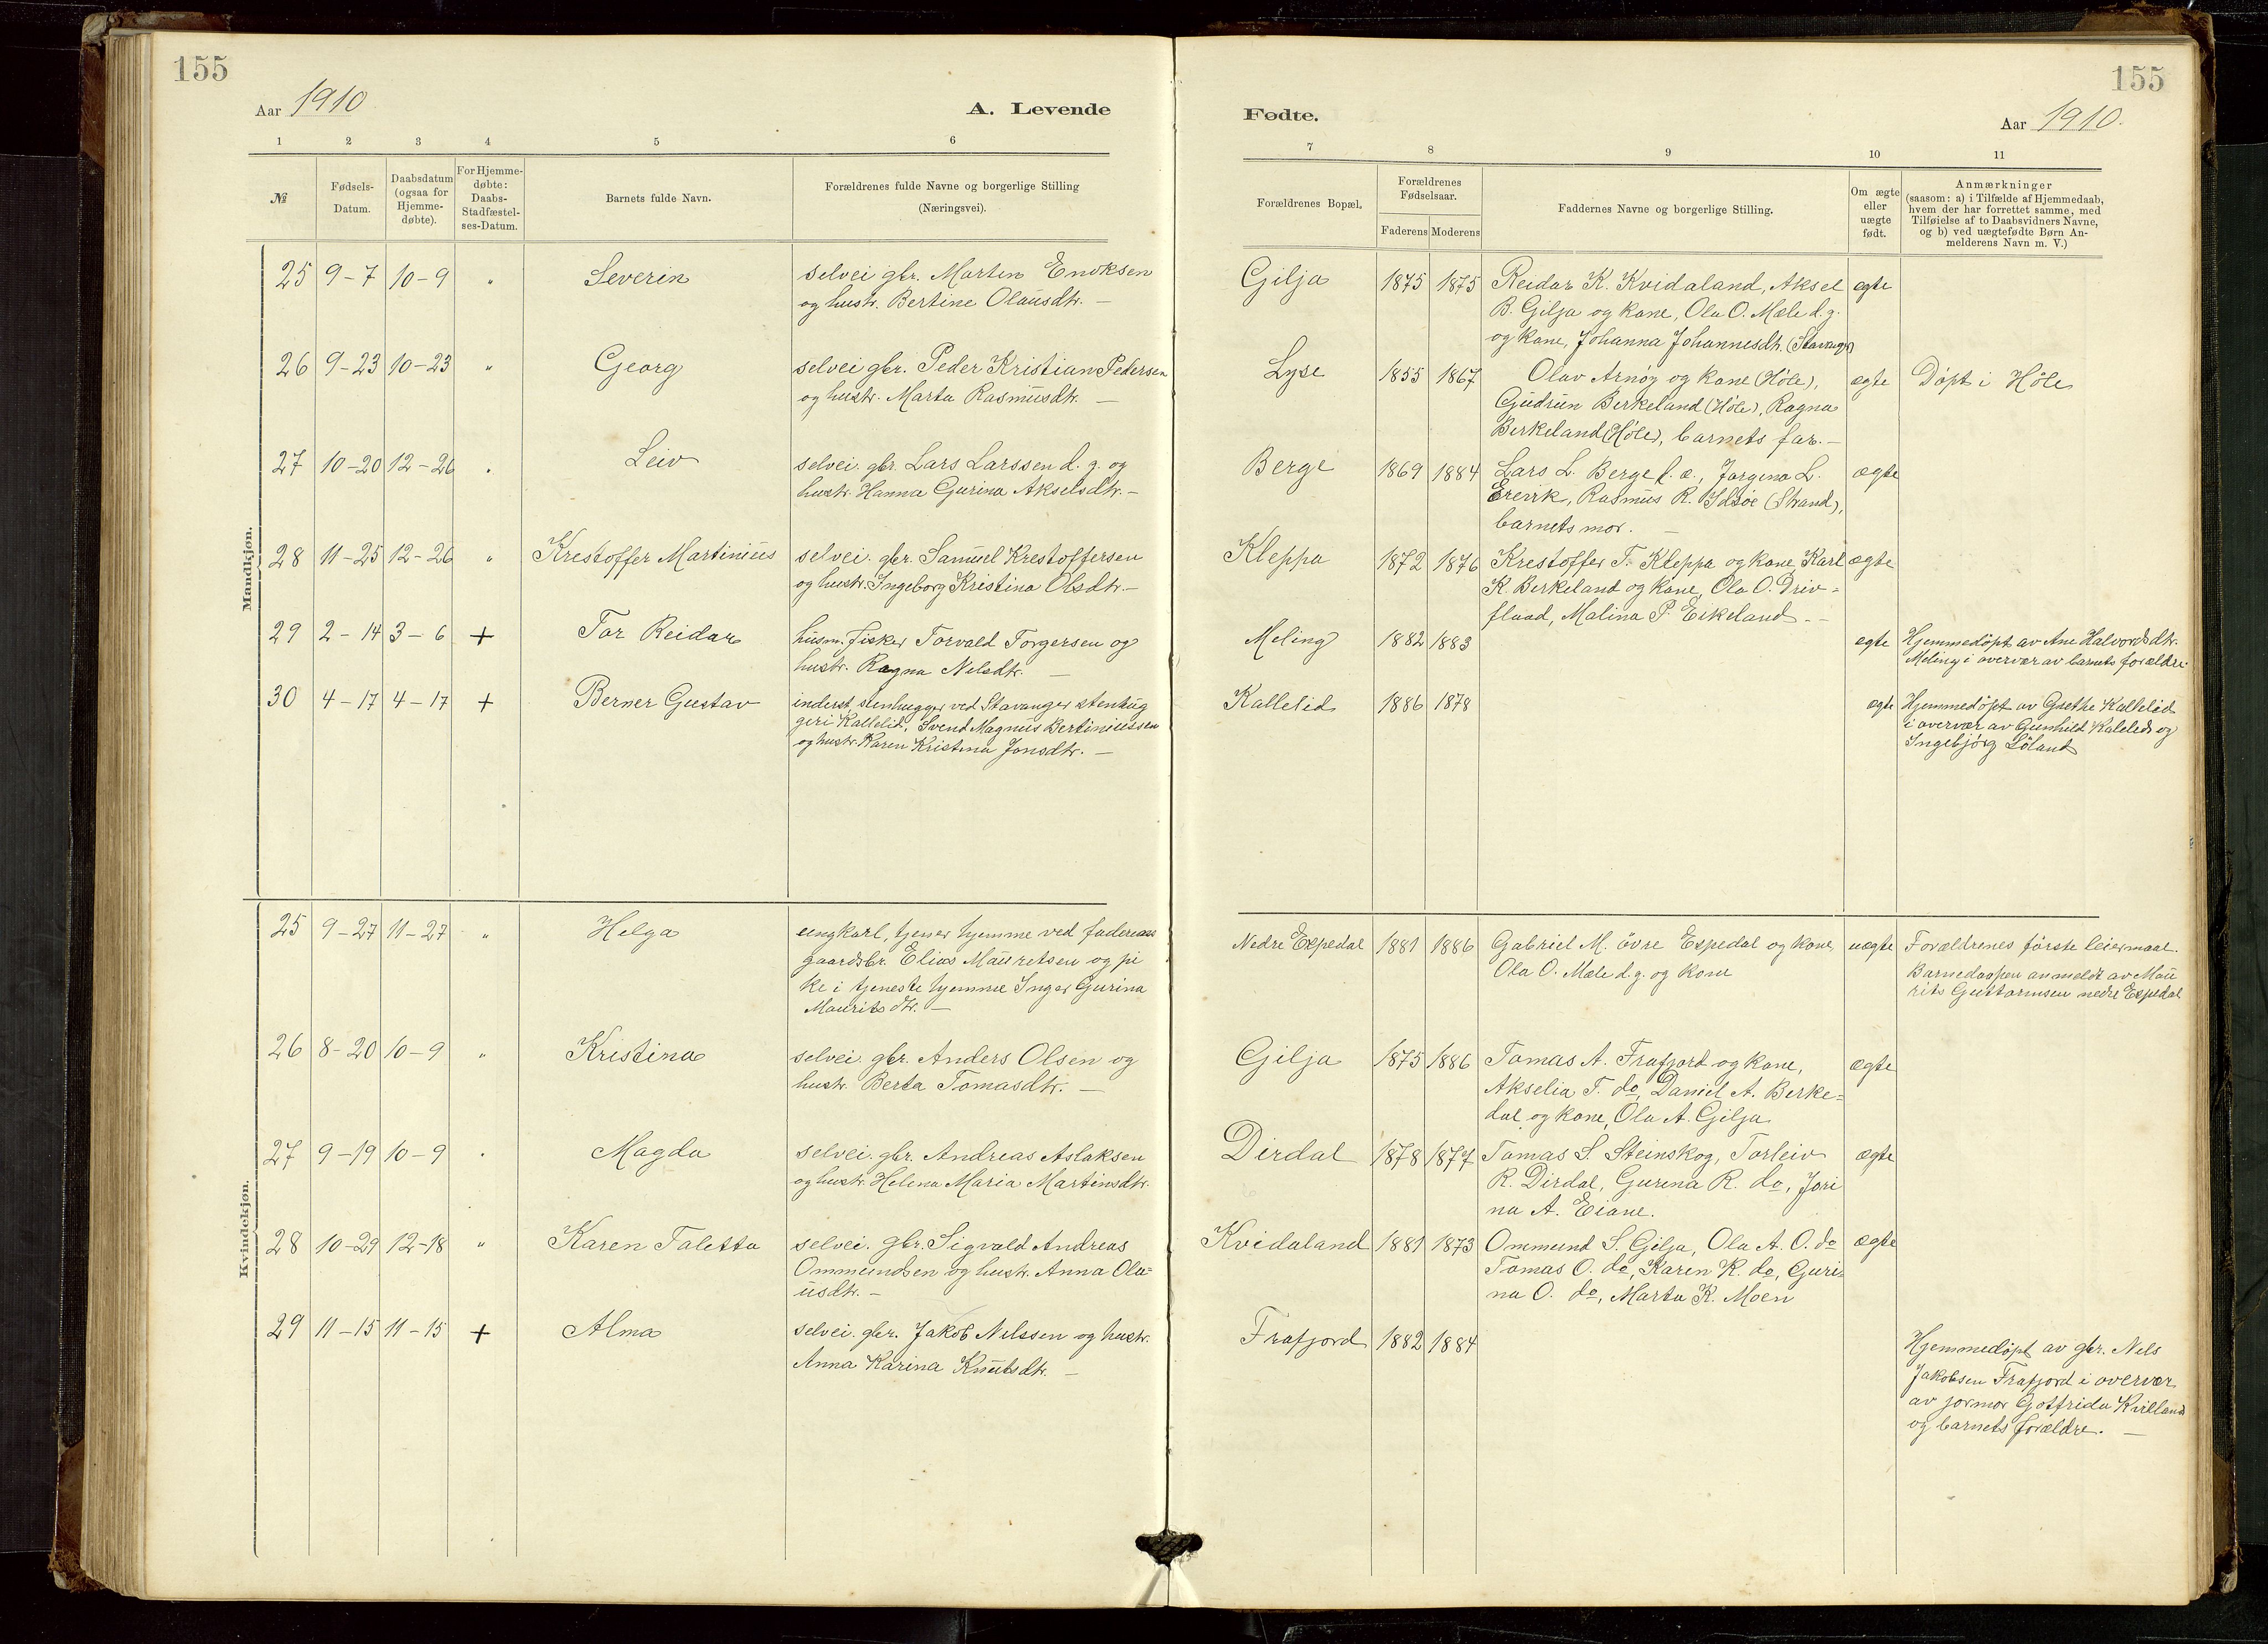 155
155
Aar 1910
A. Levende
Fødte.
Aar 1910.
1 2 3 4 5 6
7 8 9 10 11
№
Fødsels-
Datum.
Daabsdatum
(ogsaa for
Hjemme-
døbte).
For Hjemme-
døbte:
Daabs-
Stadfæstel-
ses-Datum.
Barnets fulde Navn.
Forældrenes fulde Navne og borgerlige Stilling
(Næringsvei).
Forældrenes Bopæl.
Forældrenes
Fødselsaar.
Faderens Moderens
Faddernes Navne og borgerlige Stilling.
Om ægte
eller
uægte
født.
Anmærkninger
(saasom: a) i Tilfælde af Hjemmedaab,
hvem der har forrettet samme, med
Tilføielse af to Daabsvidners Navne,
og b) ved uægtefødte Børn An-
melderens Navn m. V.)
Mandkjøn.
25 9-7 10-9 " Severin
selvei gbr. Marten Enoksen
og hustr. Bertine Olausdtr. –
Gilja 1875 1875
Reidar K. Kvidaland, Aksel
B. Gilja og kone, Ola O. Mæle d.g.
og kone, Johanna Johannesdtr. (Stavanger)
ægte
26 9-23 10-23 " Georg
selvei gbr. Peder Kristian Pedersen
og hustr. Marta Rasmusdtr. –
Lyse 1855 1867
Olav Arnøy og kone (Høle),
Gudrun Berkeland (Høle), Ragna
Berkeland (Høle), barnets far. –
ægte
Døpt i Høle
27 10-20 12-26 " Leiv
selvei. gbr. Lars Larssen d. g. og
hustr. Hanna Gurina Akselsdtr. –
Berge 1869 1884
Lars L. Berge d. æ., Jorgina L.
Erevik, Rasmus R. Idsøe (Strand),
barnets mor. –
ægte
28 11-25 12-26 " Krestoffer Martinius
selvei. gbr. Samuel Krestoffersen
og hustr. Ingeborg Kristina Olsdtr. –
Kleppa 1872 1876
Krestoffer T. Kleppa og kone, Karl
K. Berkeland og kone, Ola O. Driv-
flaad, Malina P. Eikeland. –
ægte
29 2-14 3-6 + Tor Reidar
husm. fisker Torvald Torgersen og
hustr. Ragna Nilsdtr. –
Meling 1882 1883
ægte
Hjemmedøpt av Ane Halvordsdtr.
Meling i overvær av barnets forældre
30 4-17 4-17 + Berner Gustav
inderst stenhugger ved Stavanger stenhug
geri Kallelid, Svend Magnus Bertiniussen
og hustr. Karen Kristina Jonsdtr. –
Kallelid 1886 1878
ægte
Hjemmedøpt av Grethe Kallelid
i overvær av Gunhild Kalelid og
Ingebjørg Løland
Kvindekjøn.
25 9-27 11-27 " Helga
ungkarl, tjener hjemme ved faderens
gaardsbr. Elias Mauretsen og pi
ke i tjeneste hjemme Inger Gurina
Mauritsdtr. –
Nedre Espedal 1881 1886
Gabriel M. øvre Espedal og kone,
Ola O. Mæle d.g. og kone
uægte
Forældrenes første leiermaal.
Barnedaapen anmeldt av Mau
rits Guttormsen nedre Espedal
26 8-20 10-9 " Kristina
selvei. gbr. Anders Olsen og
hustr. Berta Tomasdtr. –
Gilja 1875 1886
Tomas A. Frafjord og kone,
Akselia T. do, Daniel A. Berke-
dal og kone, Ola A. Gilja
ægte
27 9-19 10-9 " Magda
selvei. gbr. Andreas Aslaksen
og hustr. Helena Maria Martinsdtr.
Dirdal 1878 1877
Tomas S. Steinskog, Torleiv
R. Dirdal, Gurina R. do, Jori
na A. Eiane.
ægte
28 10-29 12-18 " Karen Taletta
selvei. gbr. Sigvald Andreas
Ommundsen og hustr. Anna Ola-
usdtr. –
Kvidaland 1881 1873
Ommund S. Gilja, Ola A. O. do
Tomas O. do, Karen K. do, Guri-
na O. do, Marta K. Moen
ægte
29 11-15 11-15 + Alma
selvei. gbr. Jakob Nilssen og hustr.
Anna Karina Knutsdtr. –
Frafjord 1882 1884
Hjemmedøpt av gbr. Nels
Jakobsen Frafjord i overvær
av jormor Gotfrida Kvilland
og barnets forældre. –